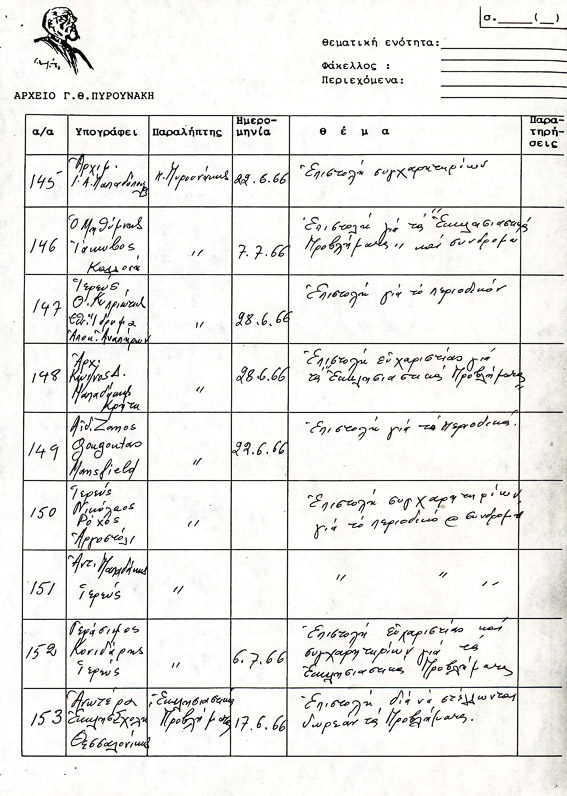 σ.____(__)
θεματική ενότητα:
Φάκελλος :
Περιεχόμενα:
ΑΡΧΕΙΟ Γ.Θ.ΠΥΡΟΥΝΑΚΗ
α/α Υπογράφει Παραλήπτης Ημερο-μηνία θ έ μ α Παρα-τηρή-σεις
145 Ἀρχιμ.
Ι.Α.Παπαδόπουλος Π.Πυρουνάκης 22.6.66 Ἐπιστολή συγχαρητηρίων
146 Ὁ Μηθύμνης
Ἰάκωβος
Καλλονή " 7.7.66 Ἐπιστολή γιά τά "Ἐκκλησιαστικά
Προβλήματα" καί συνδρομή
147 Ἱερεύς
Θ. Κυπριώτης
Ἵδρυμα
Ἀποκ. Ἀναπήρων " 28.6.66 Ἐπιστολή γιά τό περιοδικόν
148 Ἀρχ.
Κων/νος Δ.
Παπαδάκης
Κρήτη " 28.6.66 Ἐπιστολή εὐχαριστίας γιά
τά "Ἐκκλησιαστικά Προβλήματα"
149 Aid. Zanos
Gougoutas
Mansfield " 22.6.66 Ἐπιστολή γιά τό περιοδικό.
150 Ἱερεύς
Νικόλαος
Ρόχος
Ἀργοστόλι " Ἐπιστολή συγχαρητηρίων
γιά τό περιοδικό @ συνδρομή
151 Ἀντ. Παπαδάκης
Ἱερεύς " " " "
152 Γεράσιμος
Κονιδάρης
Ἱερεύς " 6.7.66 Ἐπιστολή εὐχαριστίας καί
συγχαρητηρίων γιά τά
Ἐκκλησιαστικά Προβλήματα
153 Ἀνωτέρα
Ἐκκλησ.Σχολή
Θεσσαλονίκης Ἐκκλησιαστικά
Προβλήματα 17.6.66 Ἐπιστολή διά νά στέλλωνται
δωρεάν τά Προβλήματα.